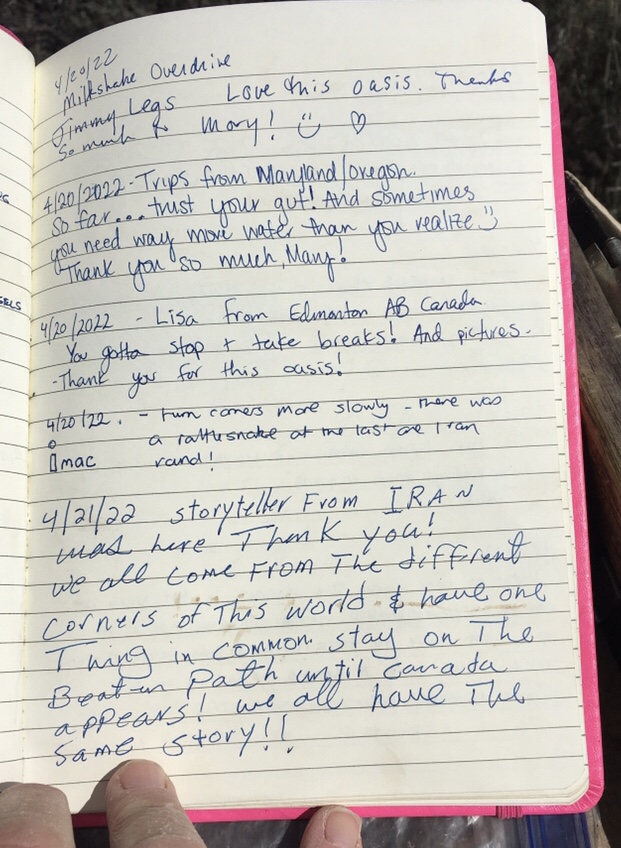 4/20/22
Milkshake Overdrive
Jimmy Legs Love this oasis. Thanks
So much Mary! ☺ ♡
4/20/2022 - Trips from Maryland/Oregon.
So far... trust your gut! And sometimes
you need way more water than you realize :)
Thank you so much, Mary!
4/20/2022 - Lisa from Edmonton AB Canada
You gotta stop + take breaks! And pictures.
- Thank you for this oasis!
4/20/22. - turn corners more slowly - there was
a rattlesnake at the last one I ran
mac rand!
4/21/22 storyteller From IRAN
was here Thank you!
we all come From The diffrent
corners of This world & have one
Thing in common stay on The
Beaten Path until Canada
appears! we all have The
same story!!
SELS